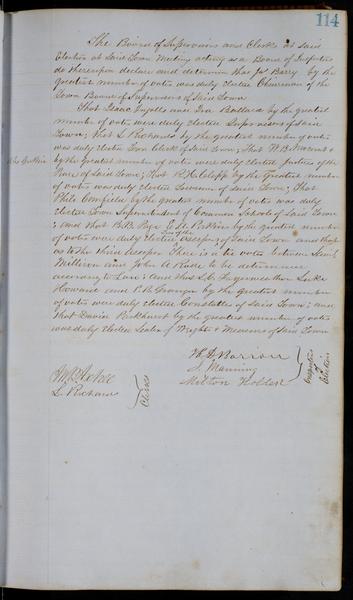 114
The Board of Supervisors and Clerks at Said
Election at Said Town Meeting acting as a Board of
do thereupon declare and determine that Barry by the
greatest number of votes was duly elected Chairman of the
Town Board of Supervisors of Said Town
That Isaac and Ira Bullock by the greatest
number of votes were duly elected Supervisors of Said
Town; that L Richards by the greatest number of votes
was duly elected Town Clerk of Said Town; That W. B.
by the greatest number of votes were duly elected Justice of the
Peace of Said Town; that R. H. Clapp by the Greatest number
of votes was duly elected of Said Town; That
Philo Canfield by the greatest number of votes was duly
elected Town Superintendent of Common Schools of Said Town
; and that B. B. E. Le Perkins by the greatest number
of votes were duly elected two of the assessors of Said Town and that
as to the third assessor There is a tie votes between
and John to be determined
according to Law; and that Ferguson Luke
Howard and P. B. by the greatest number
of votes were duly elected Constables of Said Town; and
that David Parkhurst by the greatest number of votes
was duly elected Sealer of Weights & Measures of Said Town
H. D. Barron
J. Manning
Milton
Inspectors of Election
L. Richards
Clerks